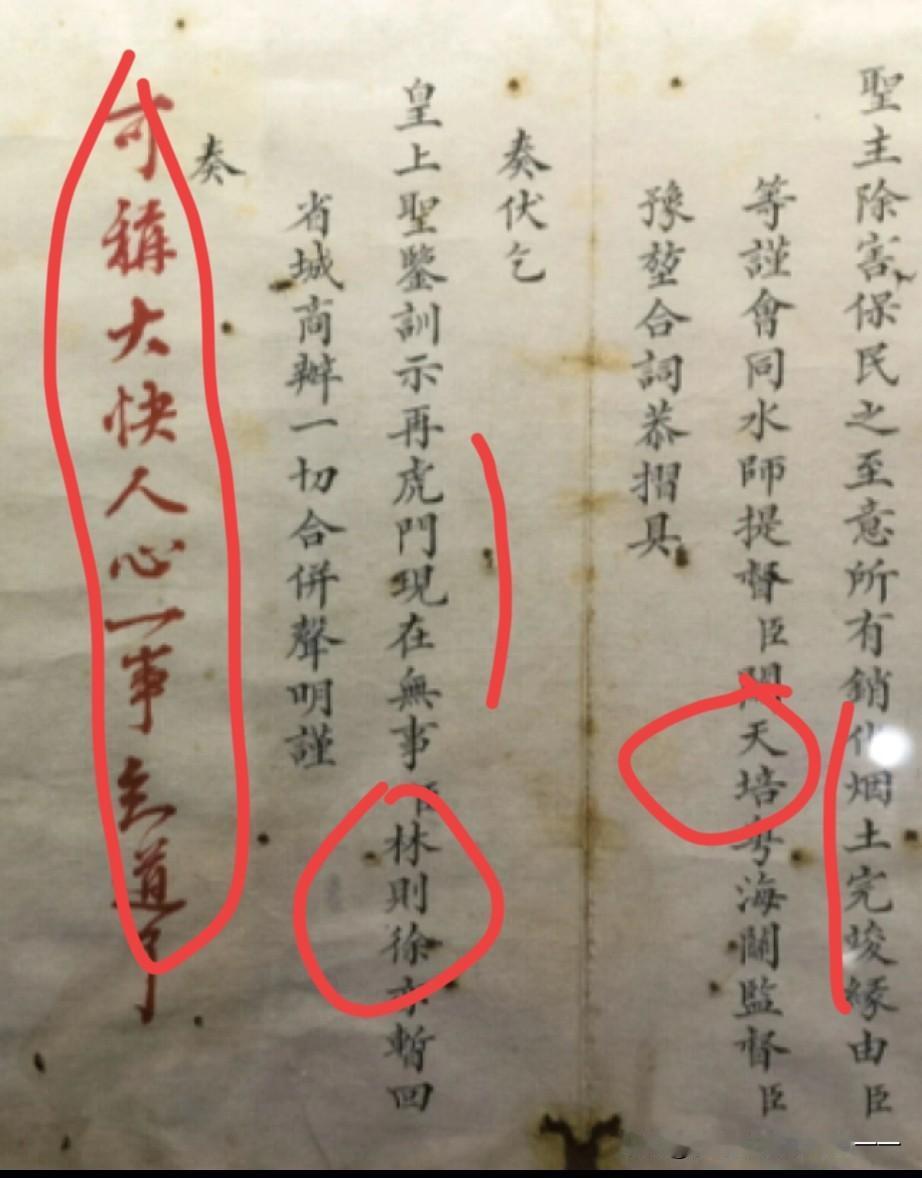 聖主除害保民之至意所有銷化烟土完竣緣由臣
等謹會同水師提督臣關天培粤海關監督臣
豫堃合詞恭摺具
奏伏乞
皇上聖鑒訓示再虎門現在無事臣林則徐亦暫回
省城商辦一切合併聲明謹
奏
可稱大快人心一事知道了